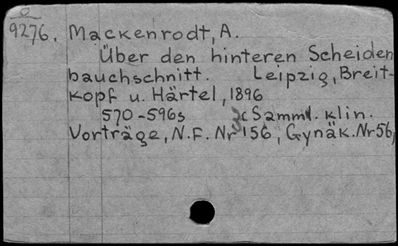 9276. Mackenrodt, A.
Über den hinteren Scheiden
bauchschnitt. Leipzig, Breit-
kopf u. Härtel, 1896
570-596s (Samml. klin.
Vorträge, N.F. Nr 156, Gynäk. Nr 56,